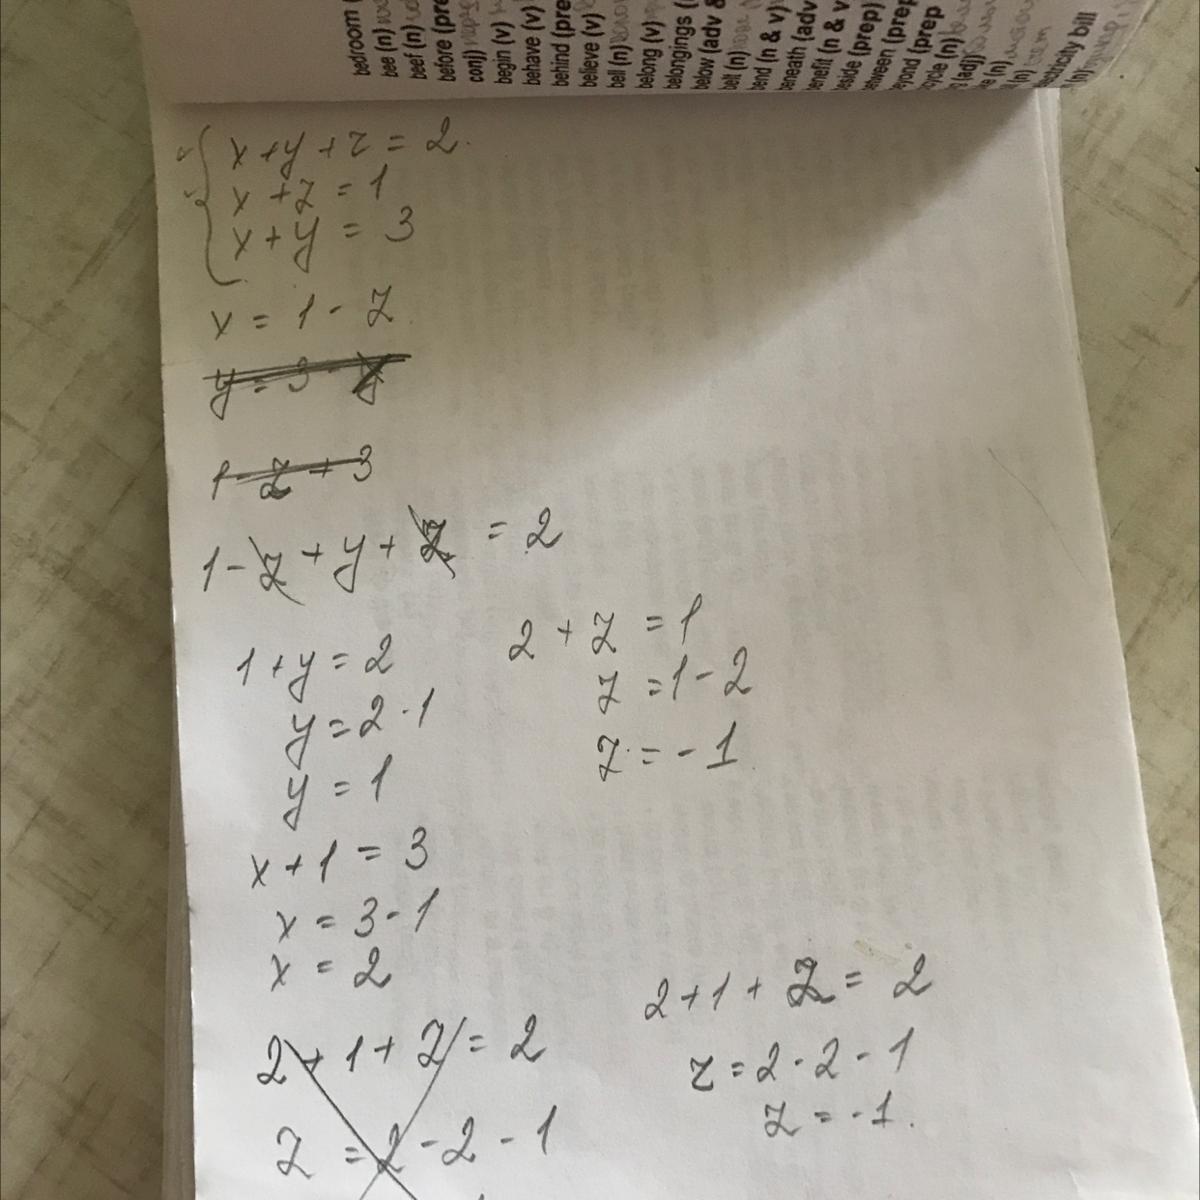 bedroom (
bee (n)
beef (n)
before (pre
conj)
begin (v)
behave (v)
behind (pre
believe (v)
bell (n)
belong (v)
belongings (
below (adv &
belt (n)
bend (n & v)
beneath (adv
benefit (n & v
beside (prep)
between (prep
beyond (prep
bicycle (n)
(adj)
(n)
(n)
electricity bill
(n)
x + y + z = 2
x + z = 1
x + y = 3
x = 1 - z
y = 3 - y
1 - z + 3
1 - z + y + z = 2
1 + y = 2
y = 2 - 1
y = 1
2 + z = 1
z = 1 - 2
z = - 1
x + 1 = 3
x = 3 - 1
x = 2
2 + 1 + z = 2
z = 2 - 2 - 1
2 + 1 + z = 2
z = 2 - 2 - 1
z = - 1.